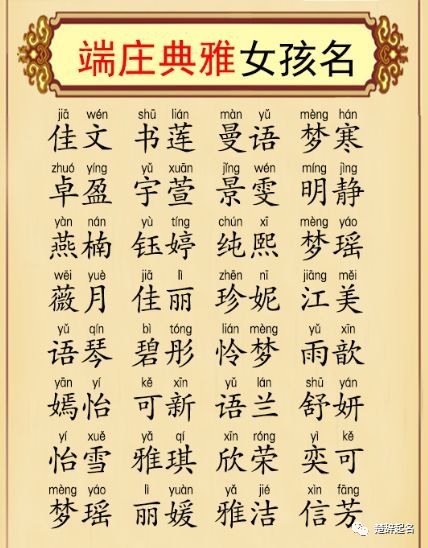 端庄典雅女孩名
jiā wén shū lián màn yǔ mèng hán
佳文 书莲 曼语 梦寒
zhuó yíng yǔ xuān jǐng wén míng jìng
卓盈 宇萱 景雯 明静
yàn nán yù tíng chún xī mèng yáo
燕楠 钰婷 纯熙 梦瑶
wēi yuè jiā lì zhēn nī jiāng měi
薇月 佳丽 珍妮 江美
yǔ qín bì tóng lián mèng yǔ xīn
语琴 碧彤 怜梦 雨歆
yān yí kě xīn yǔ lán shū yán
嫣怡 可新 语兰 舒妍
yí xuě yǎ qí xīn róng yì kě
怡雪 雅琪 欣荣 奕可
mèng yáo lì yuàn yǎ jié xìn fāng
梦瑶 丽媛 雅洁 信芳
楚辞起名